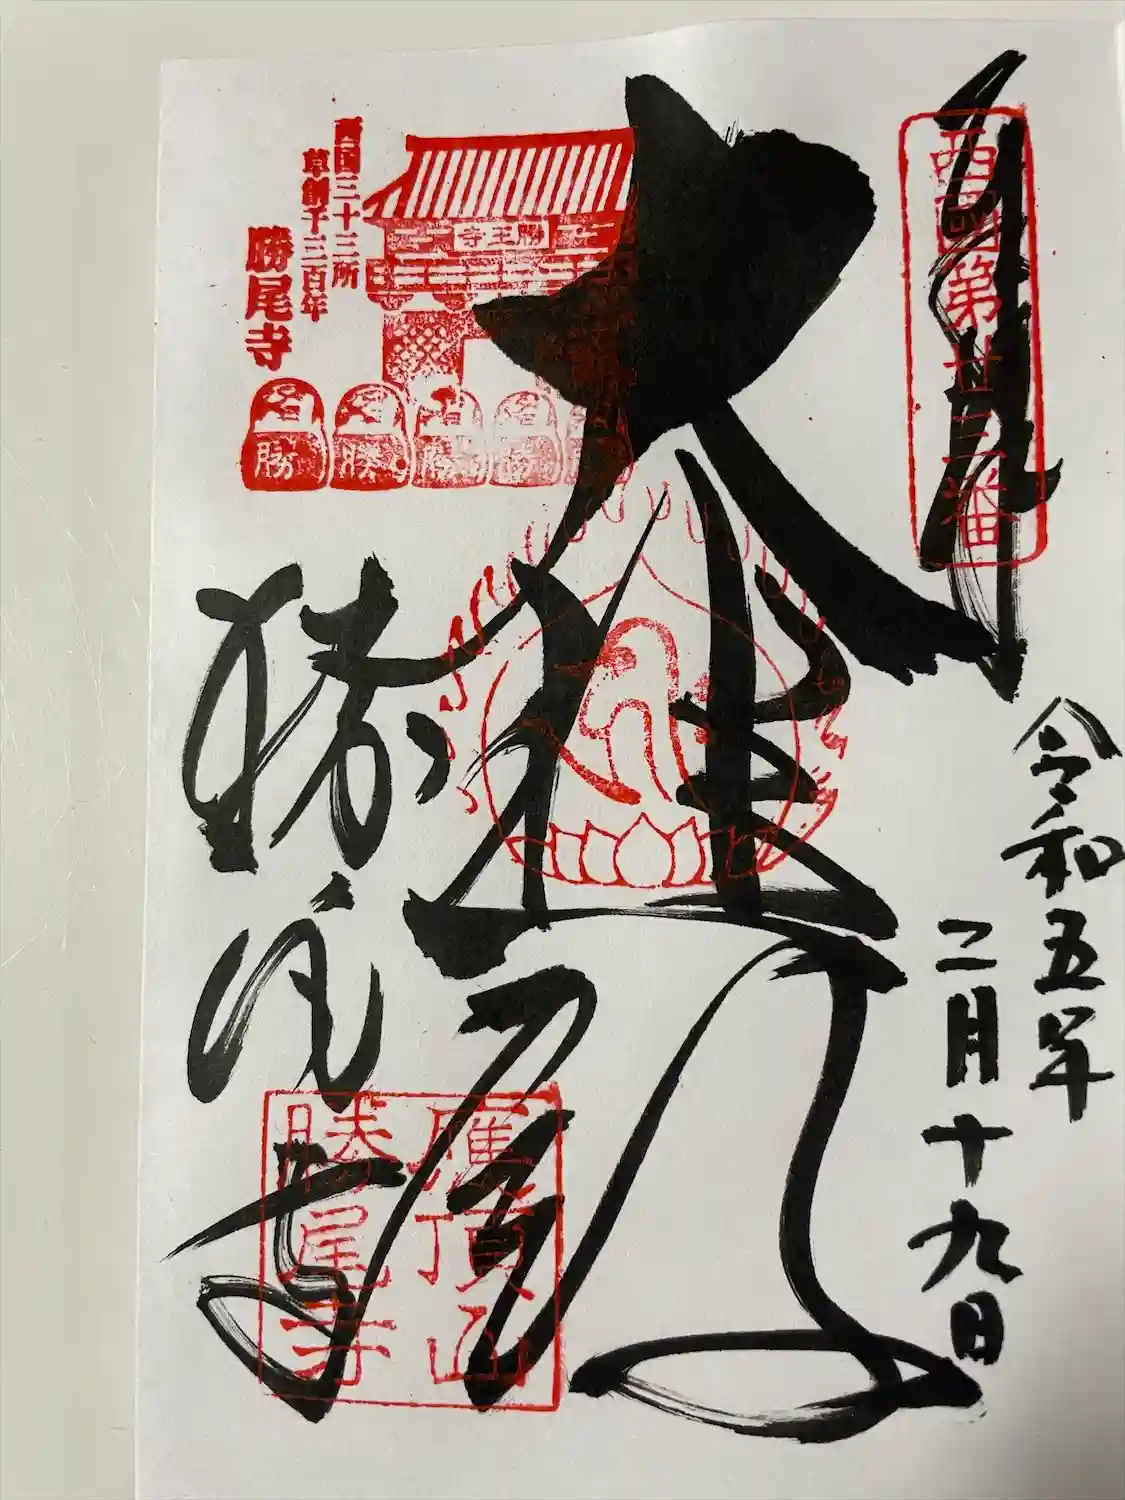 奉拝
西國第廿三番
令和五年
二月十九日
大悲殿
西国三十三所
草創千三百年
勝尾寺
勝王寺
勝
勝
勝
勝
勝
勝尾寺
應頂山
勝尾寺